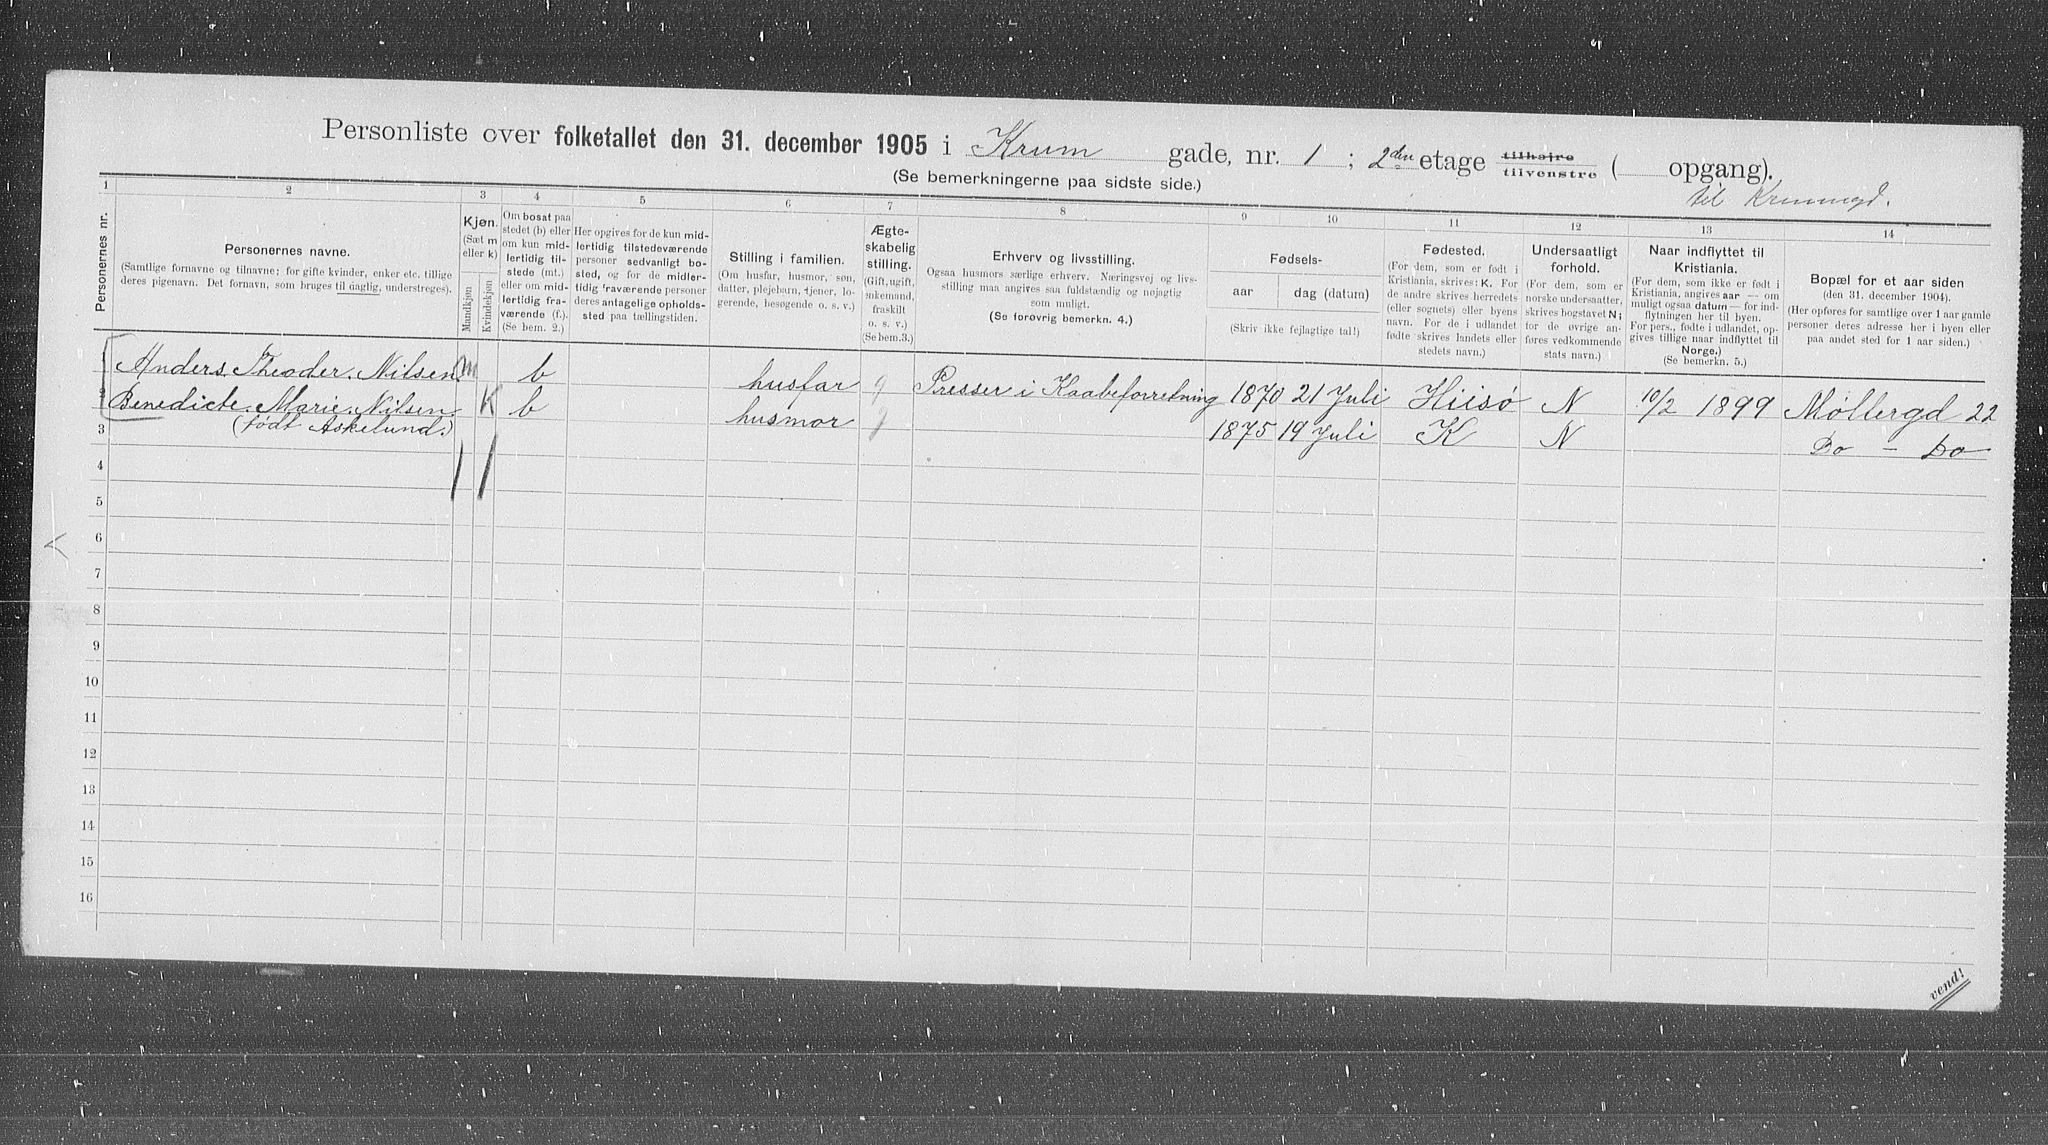 Personliste over folketallet den 31. december 1905 i Krum gade, nr. 1 ; 2den etage tilhøire tilvenstre ( opgang).
(Se bemerkningerne paa sidste side.)
til Krumgd.
1 2 3 4 5 6 7 8 9 10 11 12 13 14
Personernes nr.
Personernes navne.
(Samtlige fornavne og tilnavne; for gifte kvinder, enker etc. tillige
deres pigenavn. Det fornavn, som bruges til daglig, understreges).
Kjøn.
(Sæt m
eller k)
Mandkjøn
Kvindekjøn
Om bosat paa
stedet (b) eller
om kun mid-
lertidig til-
stede (mt.)
eller om mid-
lertidig fra-
værende (f.).
(Se bem. 2.)
Her opgives for de kun mid-
lertidig tilstedeværende
personer sedvanligt bo-
sted, og for de midler-
tidig fraværende personer
deres antagelige opholds-
sted paa tællingstiden.
Stilling i familien.
(Om husfar, husmor, søn,
datter, plejebarn, tjener, lo-
gerende, besøgende o. s. v.)
Ægte-
skabelig
stilling.
(Gift, ugift,
enkemand,
fraskilt
o. s. v.)
(Se bem.3.)
Erhverv og livsstilling.
Ogsaa husmors særlige erhverv. Næringsvej og livs-
stilling maa angives saa fuldstændig og nøjagtig
som muligt.
(Se forøvrig bemerkn. 4.)
Fødsels-
aar dag (datum)
(Skriv ikke fejlagtige tal!)
Fødested.
(For dem, som er født i
Kristiania, skrives: K. For
de andre skrives herredets
(eller sognets) eller byens
navn. For de i udlandet
fødte skrives landets eller
stedets navn.)
Undersaatligt
forhold.
(For dem, som er
norske undersaatter,
skrives bogstavet N;
for de øvrige an-
føres vedkommende
stats navn.)
Naar indflyttet til
Kristiania.
(For dem, som ikke er født i
Kristiania, angives aar — om
muligt ogsaa datum — for ind-
flytningen her til byen.
For pers., fødte i udlandet, op-
gives tillige naar indflyttet til
Norge.)
(Se bemerkn. 5.)
Bopæl for et aar siden
(den 31. december 1904).
(Her opføres for samtlige over 1 aar gamle
personer deres adresse her i byen eller
paa andet sted for 1 aar siden.)
1 Anders. Theodor. Nilsen. m b husfar g Presser i Kaabeforretning 1870 21 Juli Hiisø N 10/2 1899 Møllergd 22
2 Benedicte. Marie. Nilsen. K b husmor g 1875 19 Juli K N Do — Do
3 (født Askelund.)
4
5
6
7
8
9
10
11
12
13
14
15
16
vend!